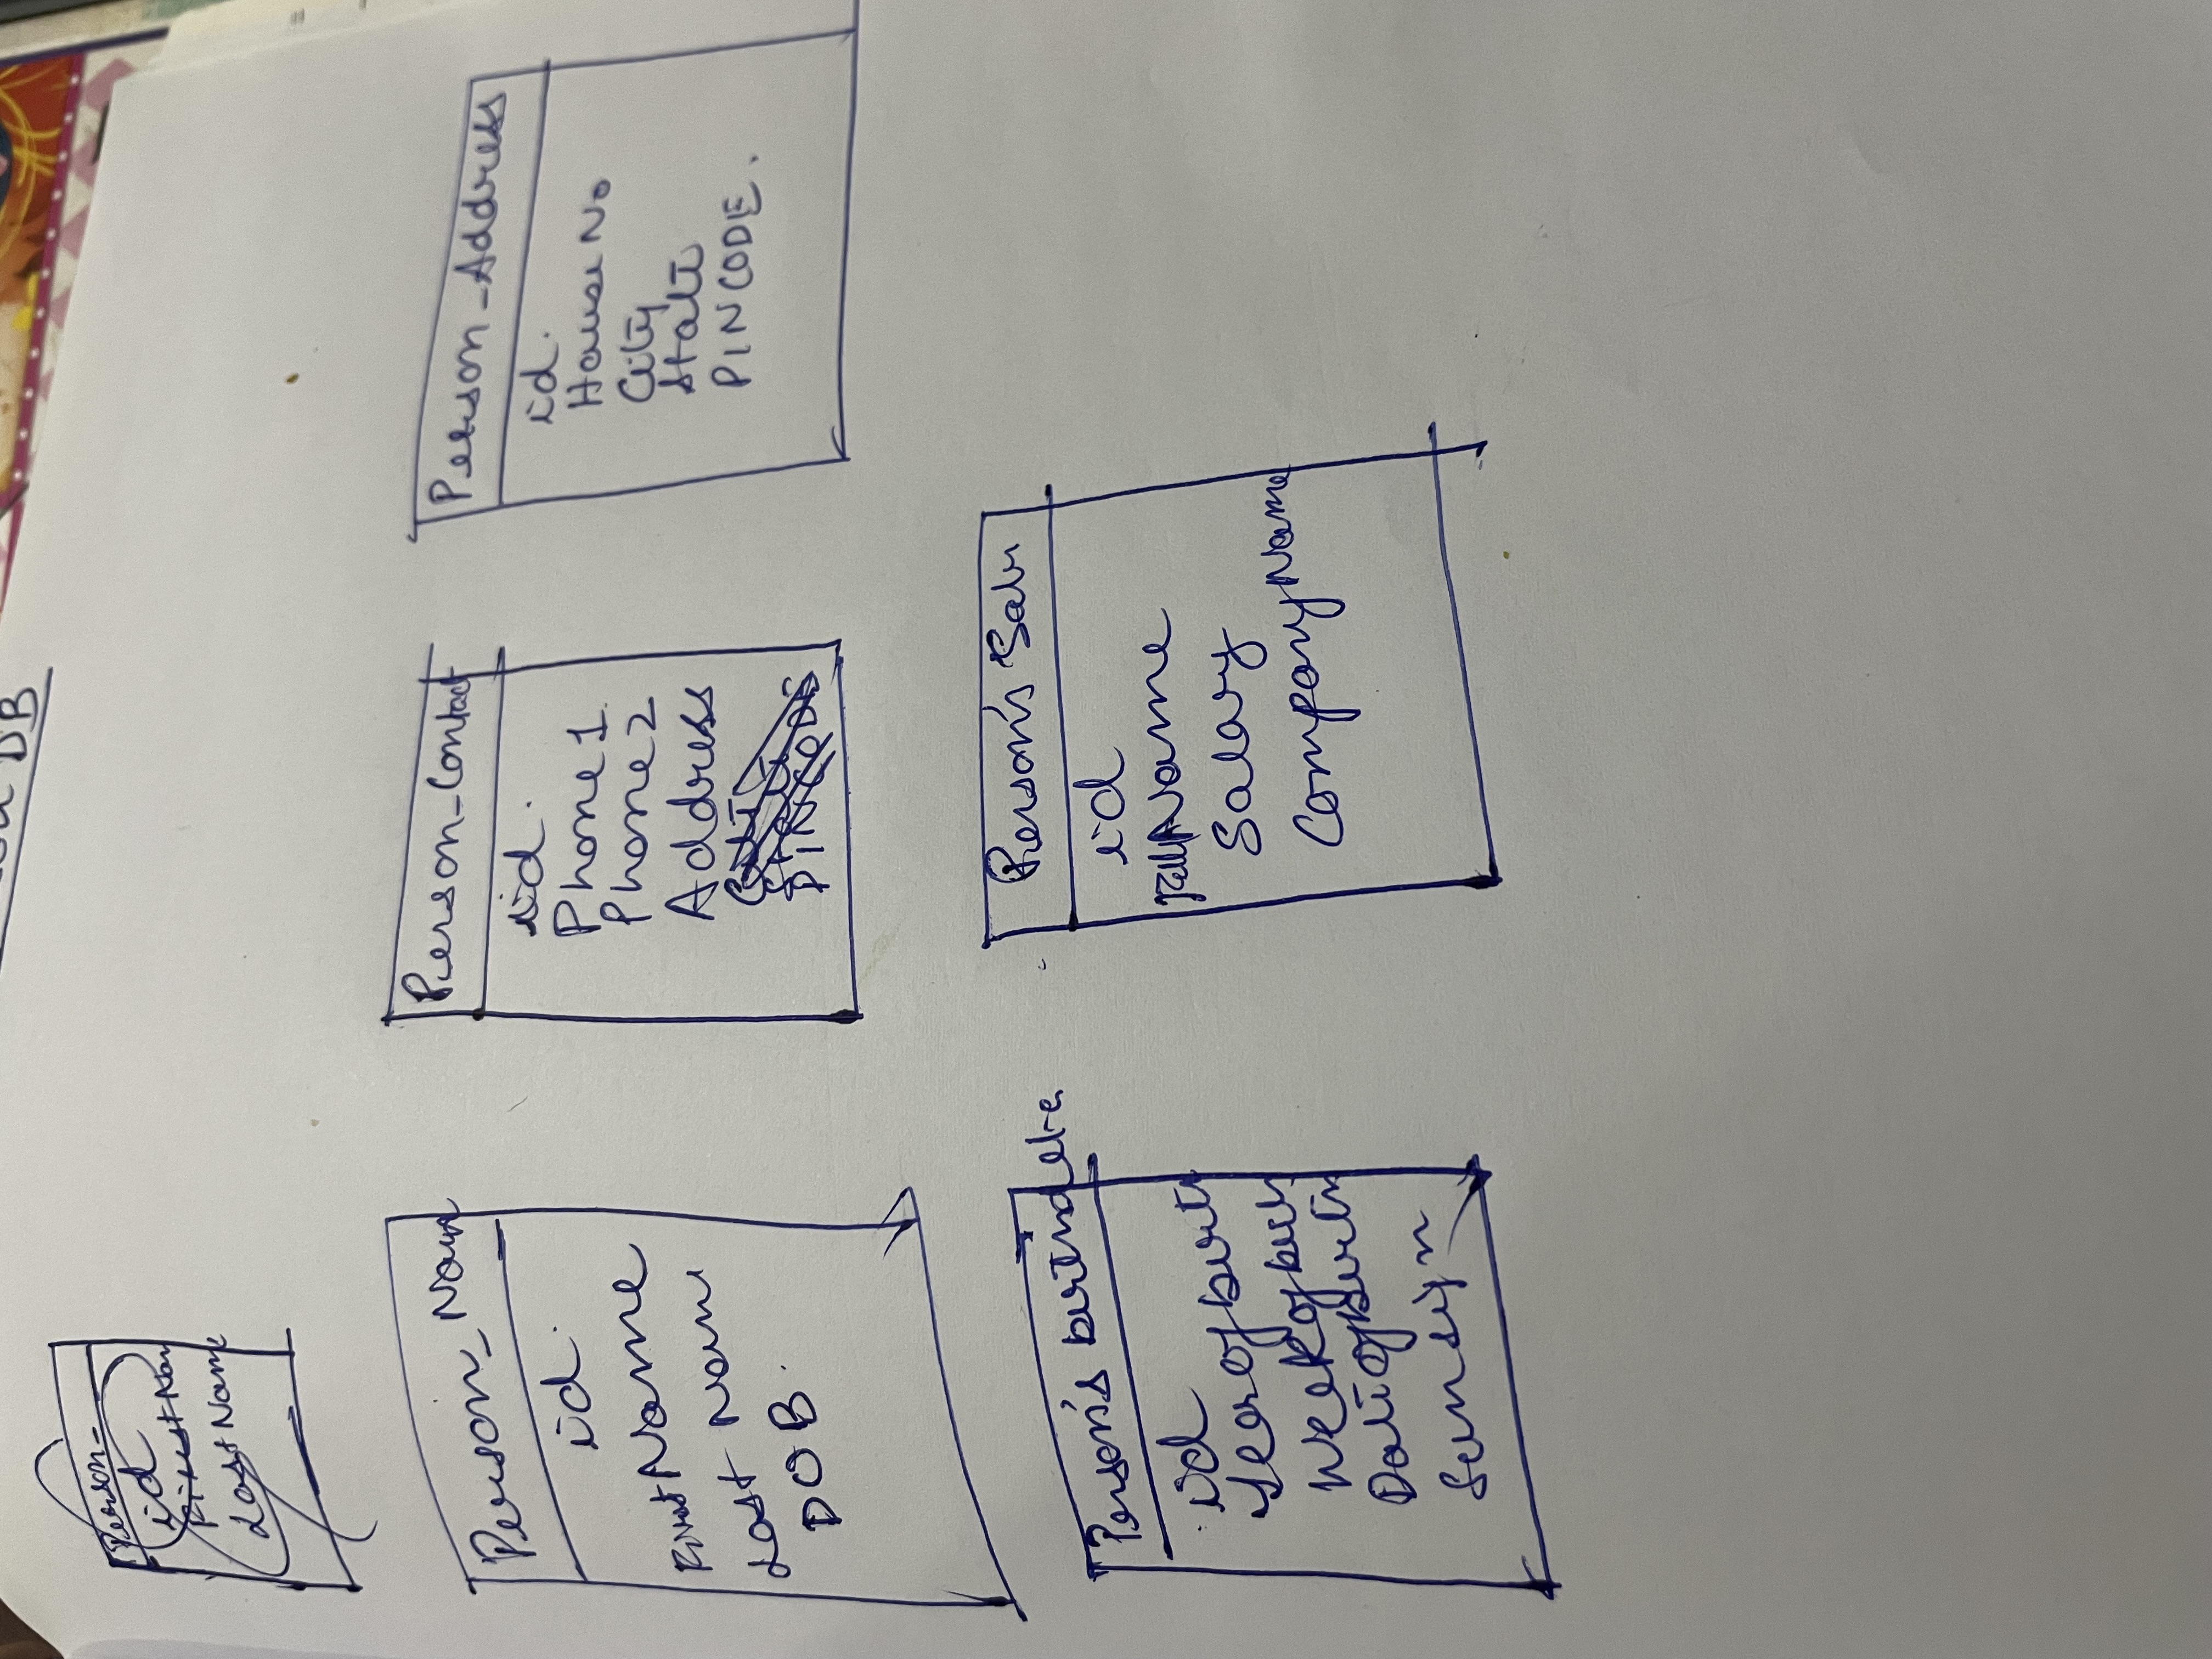 DB
Person_
id
FirstNam
LastName
Person_Name
id.
FirstName
Last Name
DOB.
Person_Contact
id.
Phone1.
Phone2
Address
PINCODE
Person_Address
id.
HouseNo
City
State
PINCODE.
Person's birthdate
id
Yearofbirth
Weekofbirth
Dateofbirth
Sunsign
Person's Salr
id
FullName
Salary
CompanyName